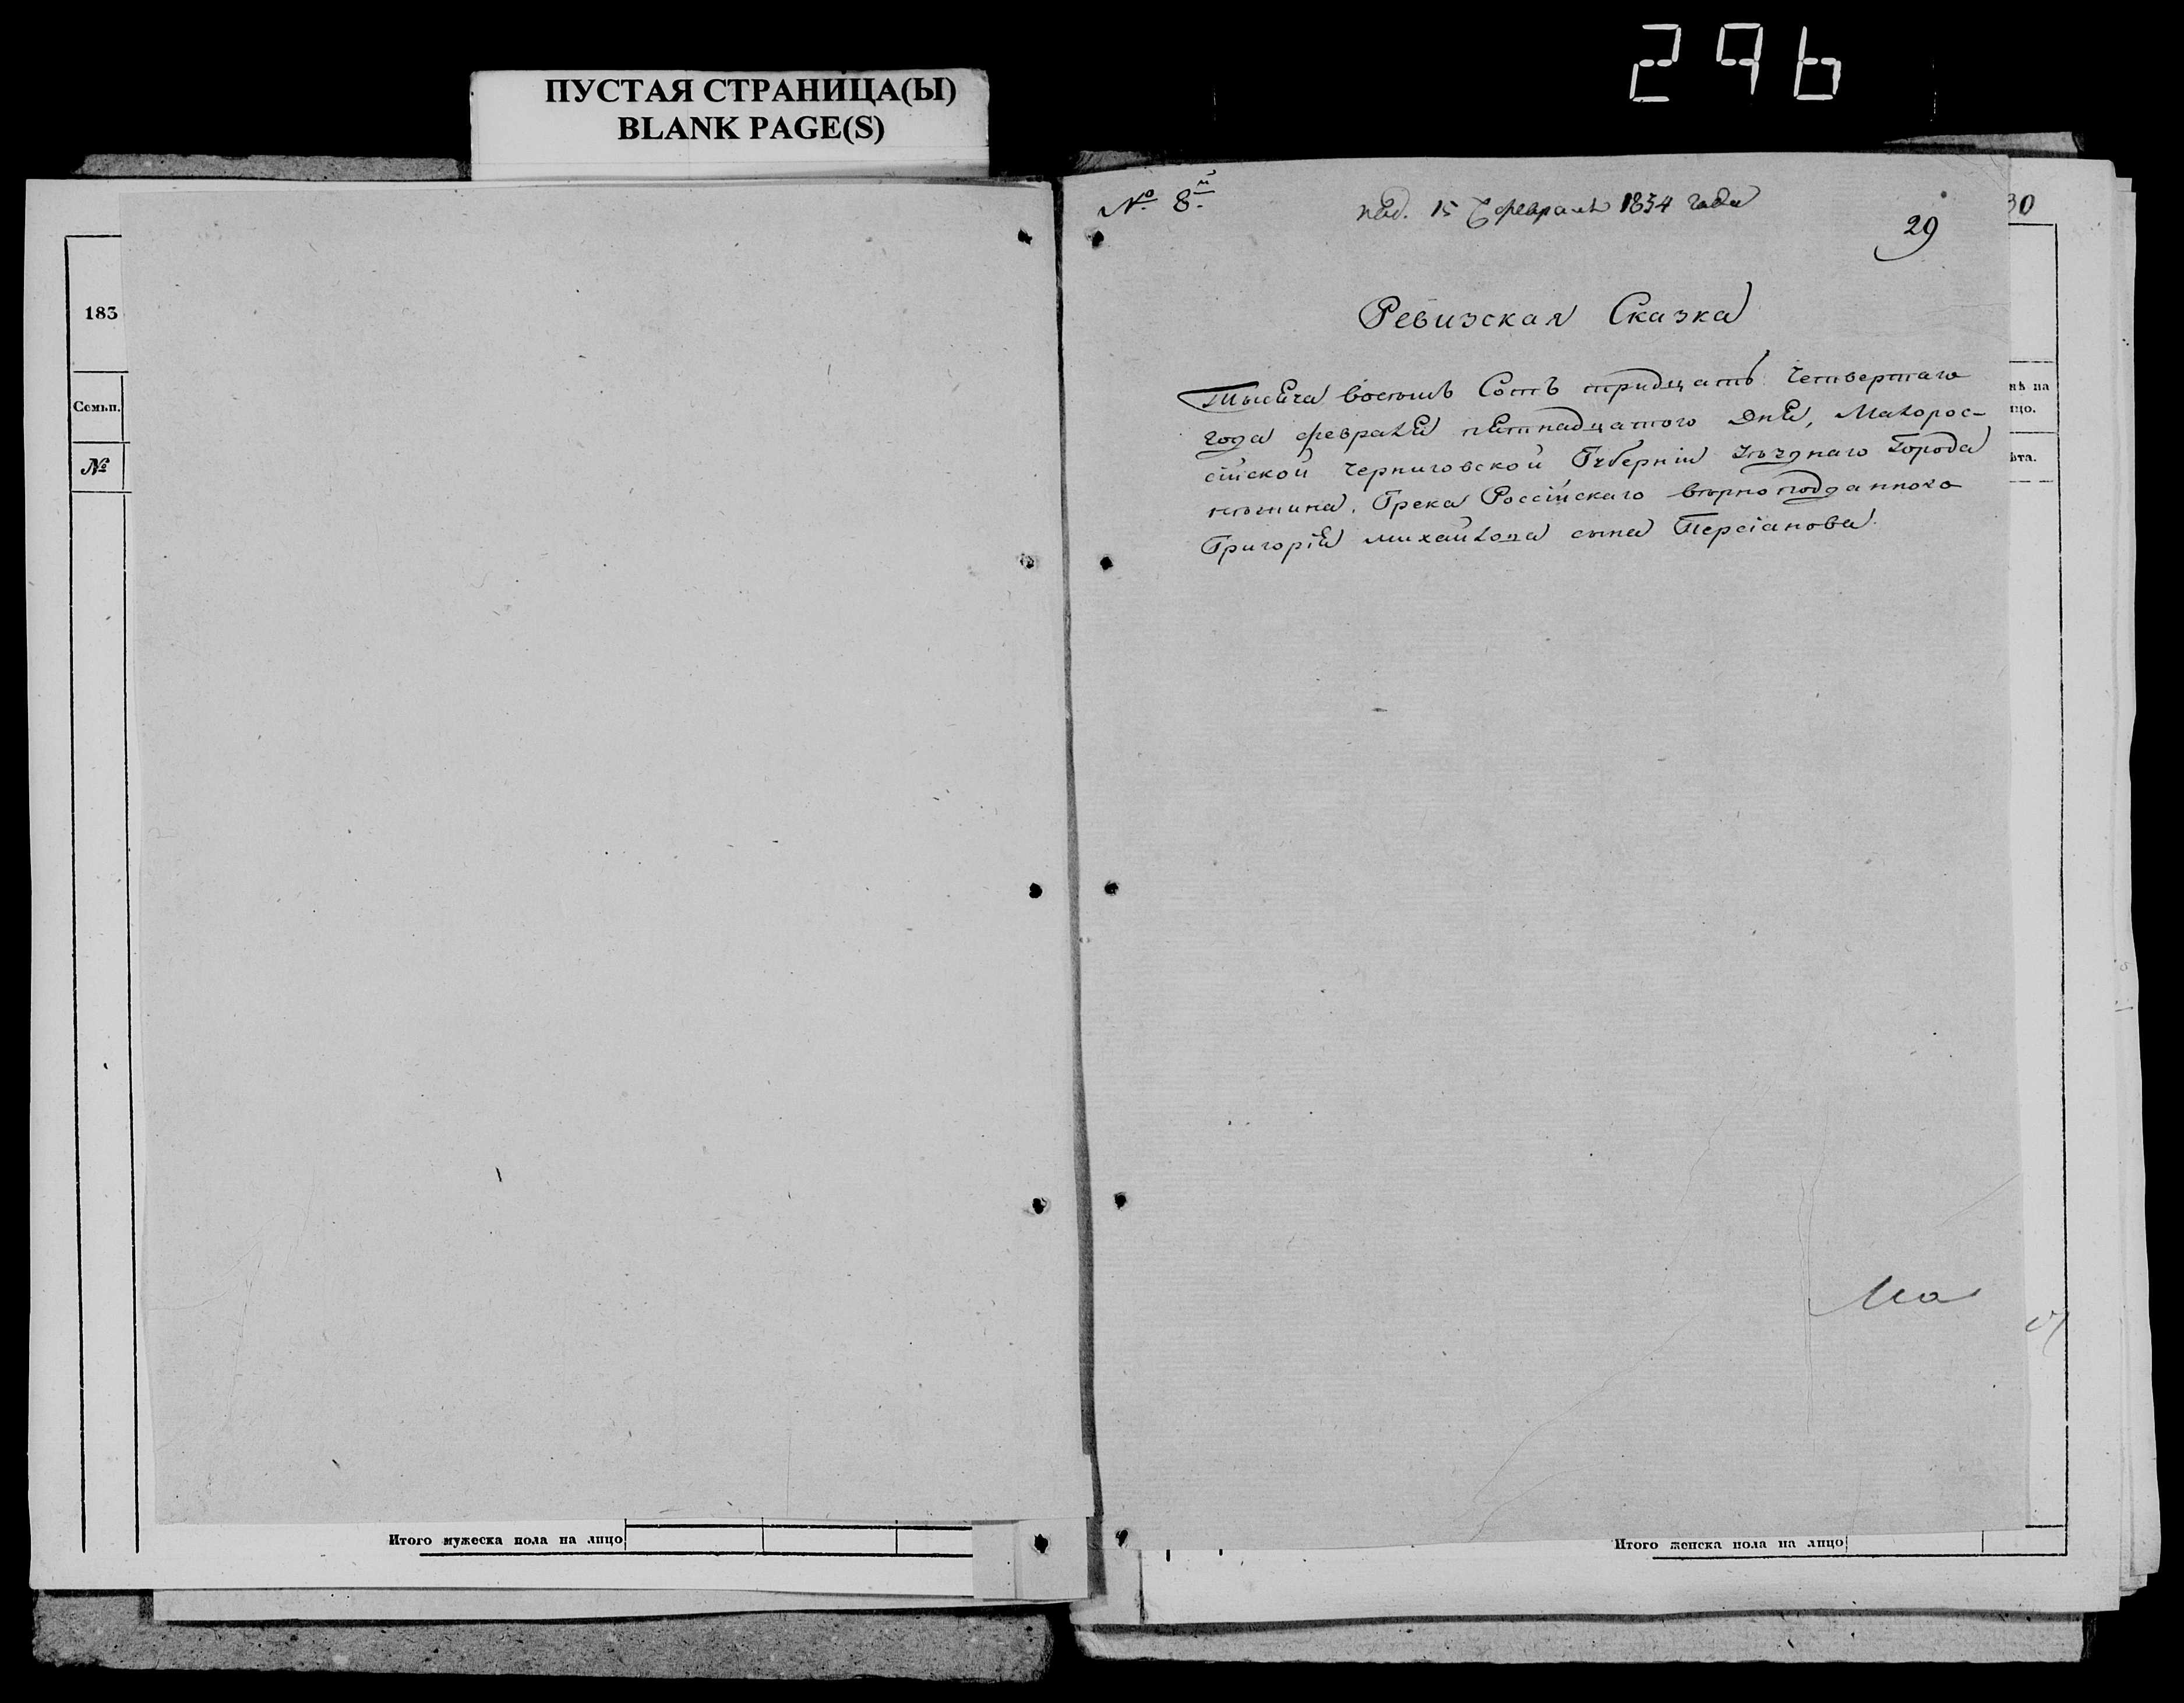 296
ПУСТАЯ СТРАНИЦА(Ы)
BLANK PAGE(S)
183
Семьи.
№
Итого мужеска пола на лицо
№ 8й
под. 15 февраля 1834 года
30
29
Ревизская Сказка
Тысяча восемь Сотъ тридцать Четвертаго
года февраля пятнадцатого Дня, Малорос-
сійской Черниговской Губерніи Уѣзднаго Города
нѣжина, Грека Россійскаго вѣрноподданного
Григорія михайлова сына Персіанова.
нѣ на
цо.
ѣта.
Итого женска пола на лицо